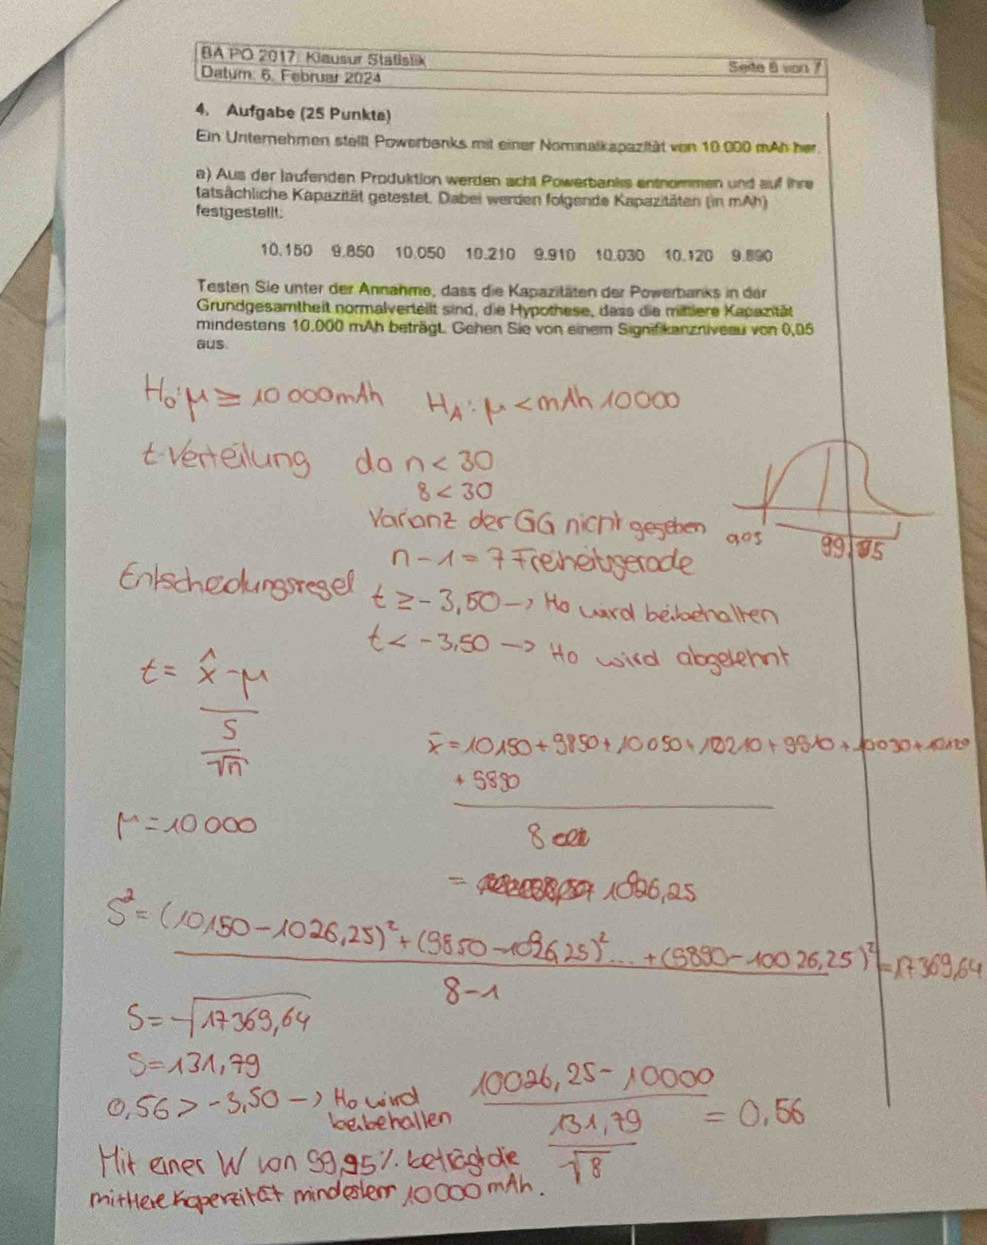 BA PO 2017: Klausur Statistik
Datum: 6. Februar 2024
Seite 6 von 7
4. Aufgabe (25 Punkte)
Ein Unternehmen stellt Powerbanks mit einer Nominalkapazität von 10.000 mAh her.
a) Aus der laufenden Produktion werden acht Powerbanks entnommen und auf ihre
tatsächliche Kapazität getestet. Dabei werden folgende Kapazitäten (in mAh)
festgestellt:
10.150 9.850 10.050 10.210 9.910 10.030 10.120 9.890
Testen Sie unter der Annahme, dass die Kapazitäten der Powerbanks in der
Grundgesamtheit normalverteilt sind, die Hypothese, dass die mittlere Kapazität
mindestens 10.000 mAh beträgt. Gehen Sie von einem Signifikanzniveau von 0,05
aus.
H₀: μ ≥ 10 000 mAh H_A: μ < mAh 10000
t-Verteilung da n < 30
8 < 30
Varianz der GG nicht gegeben
n - 1 = 7 Freiheitsgerade
Entscheidungsregel t ≥ - 3,50 -> Ho wird beibehalten
t < - 3,50 -> Ho wird abgelehnt
t = x̂ - μ
S
√n
x̄ = 10150 + 9850 + 10050 + 10210 + 9910 + 10030 + 10120
+ 9890
8
= 10026,25
μ = 10 000
S² = (10150 - 1026,25)² + (9850 - 10026,25)² ... + (9890 - 10026,25)² = 17369,64
8 - 1
S = √17369,64
S = 131,79
0,56 > - 3,50 -> Ho wird
beibehallen
10026,25 - 10000
131,79
√8
= 0,56
Mit einer W von 99,95 %. beträgt die
mittlere Kaperzität mindestens 10000 mAh.